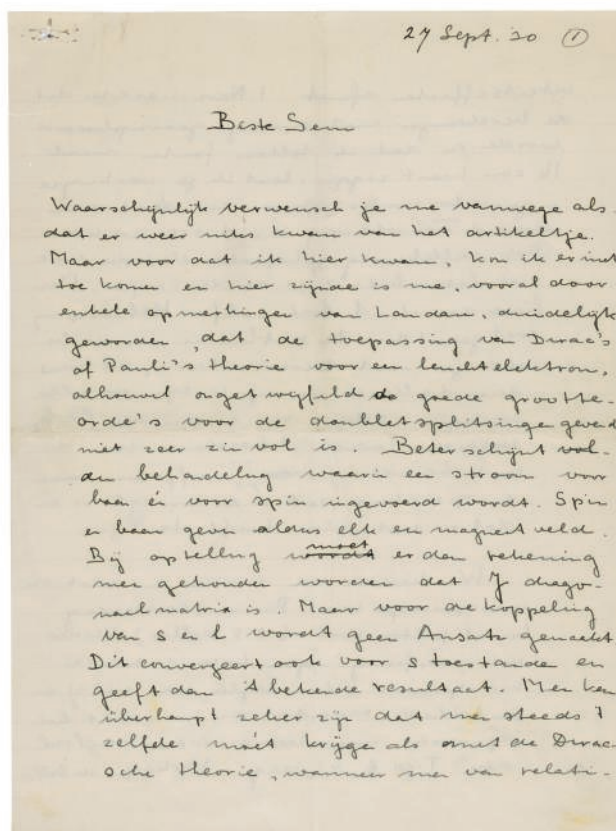 27 Sept. '30 ①
Beste Sem
Waarschijnlijk verwensch je me vanwege als
dat er weer niks kwam van het artikeltje.
Maar voor dat ik hier kwam, kon ik er niet
toe komen en hier zijnde is me, vooral door
enkele opmerkingen van Landau, duidelijk
geworden, dat de toepassing van Dirac's
of Pauli's theorie voor een leuchtelektron,
alhoewel ongetwijfeld de goede grootte-
orde's voor de doubletsplitsinge gevend
niet zeer zinvol is. Beter schijnt vol-
den behandeling waarin een stroom voor
baan én voor spin ingevoerd wordt. Spin
en baan geven aldus elk en magneetveld.
Bij opstelling wordt moet er dan rekening
mee gehouden worden dat J diago-
naalmatrix is. Maar voor de koppeling
van s en l wordt geen Ansatz gemaakt
Dit convergeert ook voor s toestande en
geeft dan 't bekende resultaat. Men kan
überhaupt zeker zijn dat men steeds 't
zelfde móét krijge als met de Dirac-
sche theorie, wanneer men van relati-